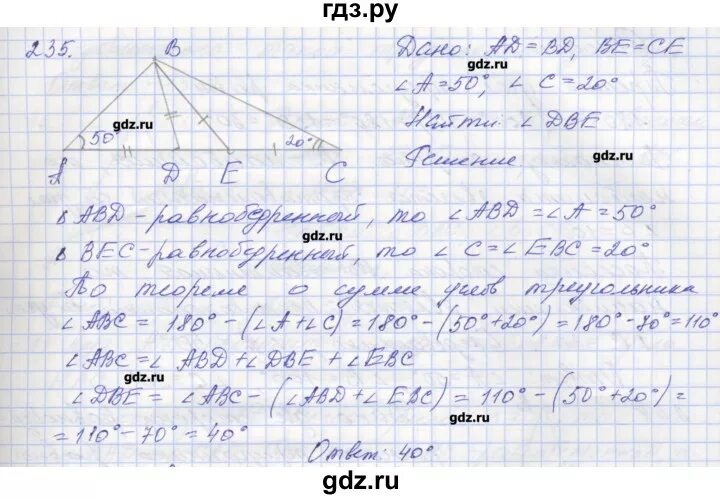 гдз.ру
235.
B
gdz.ru
50°
20°
A
D
E
C
Дано: AD = BD, BE = CE
gdz.ru
∠A = 50°, ∠C = 20°
Найти: ∠DBE
Решение
gdz.ru
Δ ABD - равнобедренный, то ∠ABD = ∠A = 50°
gdz.ru
Δ BEC - равнобедренный, то ∠C = ∠EBC = 20°
По теореме о сумме углов треугольника
∠ABC = 180° - (∠A + ∠C) = 180° - (50° + 20°) = 180° - 70° = 110°
∠ABC = ∠ABD + ∠DBE + ∠EBC
gdz.ru
∠DBE = ∠ABC - (∠ABD + ∠EBC) = 110° - (50° + 20°) =
= 110° - 70° = 40°
gdz.ru
Ответ: 40°
gdz.ru